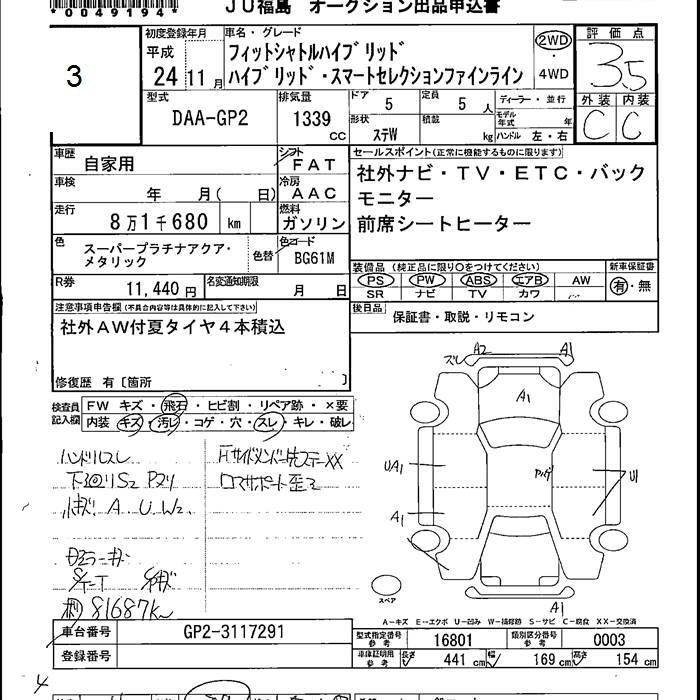 *0049194*
JU福島 オークション出品申込書
3
初度登録年月
平成
24 11月
車名・グレード
フィットシャトルハイブリッド
ハイブリッド・スマートセレクションファインライン
2WD
・
4WD
評価点
3.5
外装 内装
C C
型式
DAA-GP2
排気量
1339
cc
ドア
5
定員
5 人
ディーラー・並行
形状
ステW
積載
kg
モデル年式
年
ハンドル 左・右
車歴
自家用
シフト
FAT
セールスポイント(正常に機能するものに限ります)
社外ナビ・TV・ETC・バック
モニター
前席シートヒーター
車検
年 月( 日)
冷房
AAC
走行
8万1千680 km
燃料
ガソリン
色
スーパープラチナアクア・
メタリック
色替
色コード
BG61M
R券
11,440 円
名変通知期限
月 日
装備品(純正品に限り○をつけてください)
PS PW ABS エアB AW
SR ナビ TV カワ
新車保証書
有・無
後日品
保証書・取説・リモコン
注意事項申告欄(不具合内容等は具体的に記入して下さい)
社外AW付夏タイヤ4本積込
修復歴 有〔箇所 〕
検査員
記入欄
FW キズ・飛石・ヒビ割・リペア跡・×要
内装 キズ・汚レ・コゲ・穴・スレ・キレ・破レ
ハンドルスレ
A U W2
81687k
ズレ A2 A1
A1
UA1
A1
U1
A1
スペア
A-キズ E-エクボ U-凹み W-補修跡 S-サビ C-腐食 XX-交換済
車台番号
GP2-3117291
登録番号
型式指定番号
参考
16801
類別区分番号
参考
0003
車庫証明用
参考
長さ
441 cm
幅
169 cm
高さ
154 cm